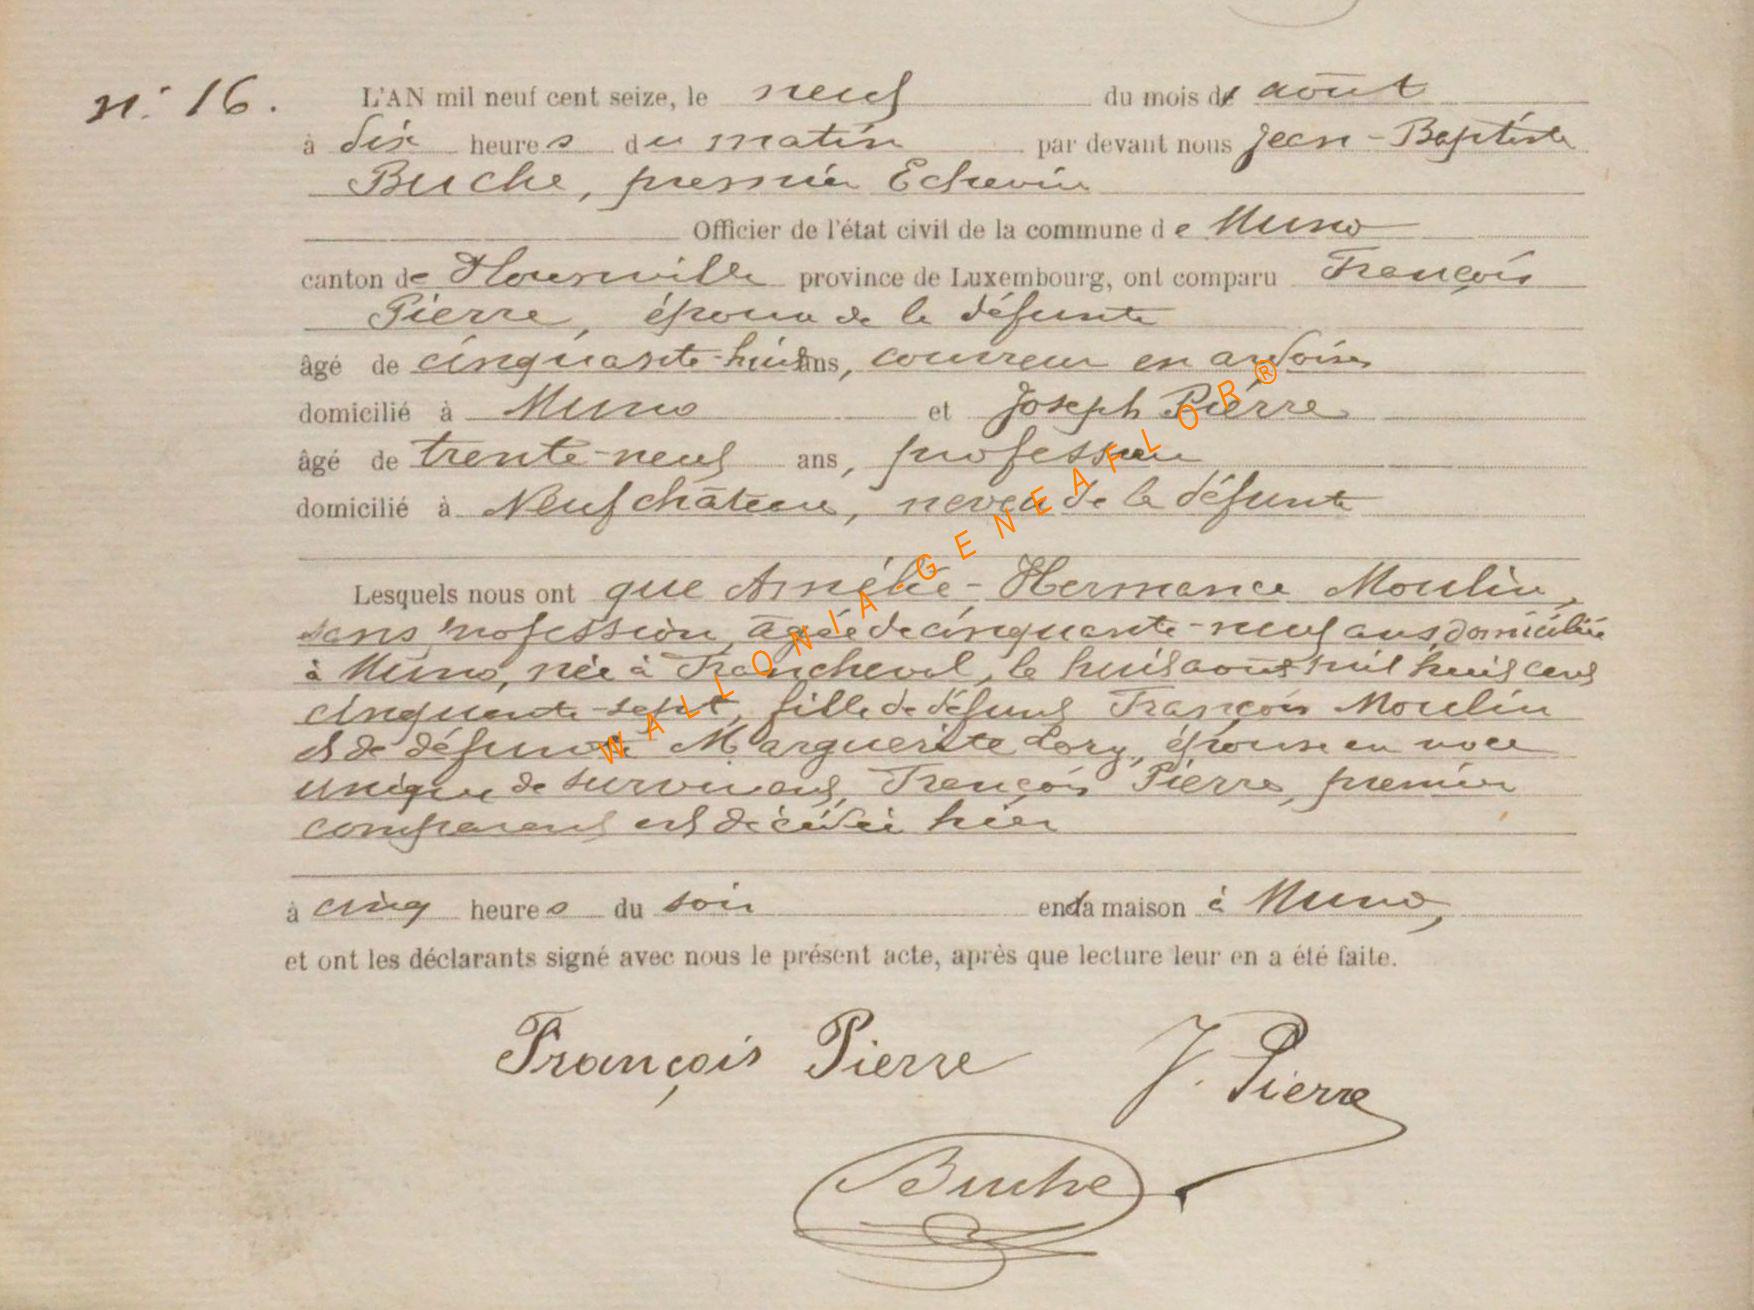 n° 16.
L'AN mil neuf cent seize, le neuf du mois d' août
à dix heures du matin par devant nous Jean-Baptiste
Buche, premier Echevin
Officier de l'état civil de la commune de Muno
canton de Florenville province de Luxembourg, ont comparu François
Pierre, époux de la défunte
âgé de cinquante-huit ans, couvreur en ardoises
domicilié à Muno et Joseph Pierre
âgé de trente-neuf ans, professeur
domicilié à Neufchâteau, neveu de la défunte
Lesquels nous ont que Amélie-Hermance Moulin,
sans profession, âgée de cinquante-neuf ans domiciliée
à Muno, née à Francheval, le huit août mil huit cent
cinquante-sept, fille de défunt François Moulin
et de défunte Marguerite Lory, épouse en noce
unique de survivant, François Pierre, premier
comparant est décédée hier
à cinq heures du soir en sa maison à Muno,
et ont les déclarants signé avec nous le présent acte, après que lecture leur en a été faite.
François Pierre J. Pierre
Buche
WALLONIA-GENEAFLOR®